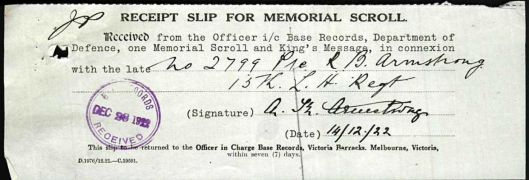 RECEIPT SLIP FOR MEMORIAL SCROLL.
Received from the Officer i/c Base Records, Department of
Defence, one Memorial Scroll and King's Message, in connexion
with the late No 2799 Pte R. B. Armstrong
15th L. H. Regt
(Signature) Armstrong
(Date) 14/12/22
RECORDS
DEC 1922
RECEIVED
This slip to be returned to the Officer in Charge Base Records, Victoria Barracks, Melbourne, Victoria,
within seven (7) days.
D.1976/12.21.—C.19691.